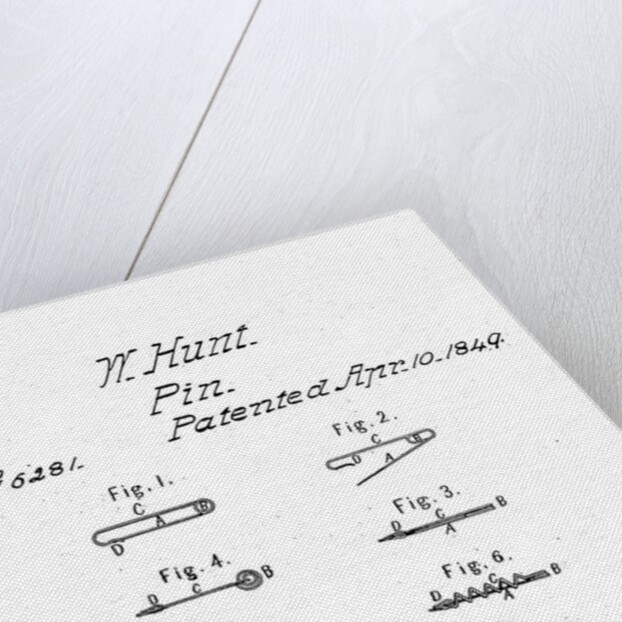 W. Hunt.
Pin.
Patented Apr. 10. 1849.
6281.
Fig. 1.
C
A
B
D
Fig. 2.
C
B
D
A
Fig. 3.
C
B
D
A
Fig. 4.
B
D
C
Fig. 6.
C
B
D
A